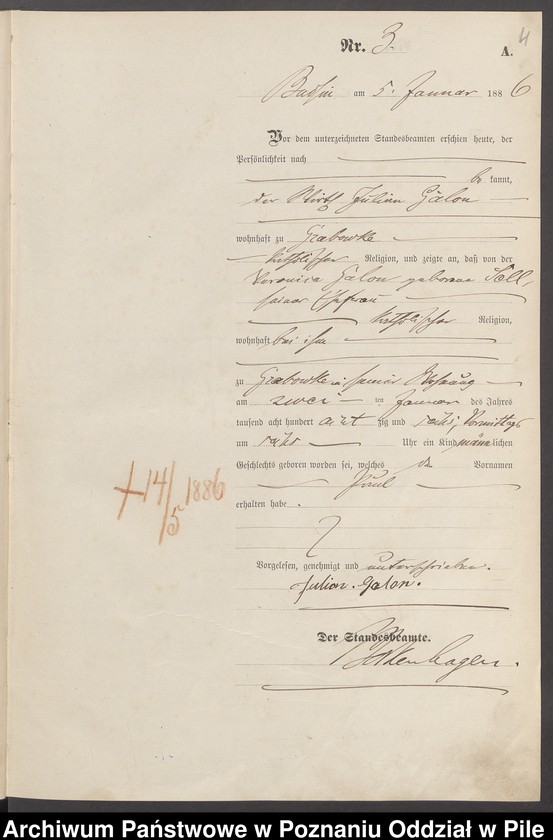 4
Nr. 3. A.
am 5. Januar 1886
Vor dem unterzeichneten Standesbeamten erschien heute, der
Persönlichkeit nach
be kannt,
der Wirth Julian Galon
wohnhaft zu Grabowke
katholischer Religion, und zeigte an, daß von der
Veronica Galon geborene
seiner Ehefrau
katholischer Religion,
wohnhaft bei ihm
zu Grabowke in seiner Wohnung
am zwei ten Januar des Jahres
tausend acht hundert acht zig und sechs, Vormittags
um sechs Uhr ein Kind männlichen
Geschlechts geboren worden sei, welches den Vornamen
Paul
erhalten habe.
Vorgelesen, genehmigt und unterschrieben.
Julian Galon.
Der Standesbeamte.
+14/5 1886
Archiwum Państwowe w Poznaniu Oddział w Pile